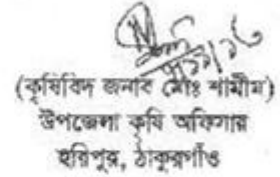 (কৃষিবিদ জনাব মোঃ শামীম)
উপজেলা কৃষি অফিসার
হরিপুর, ঠাকুরগাঁও